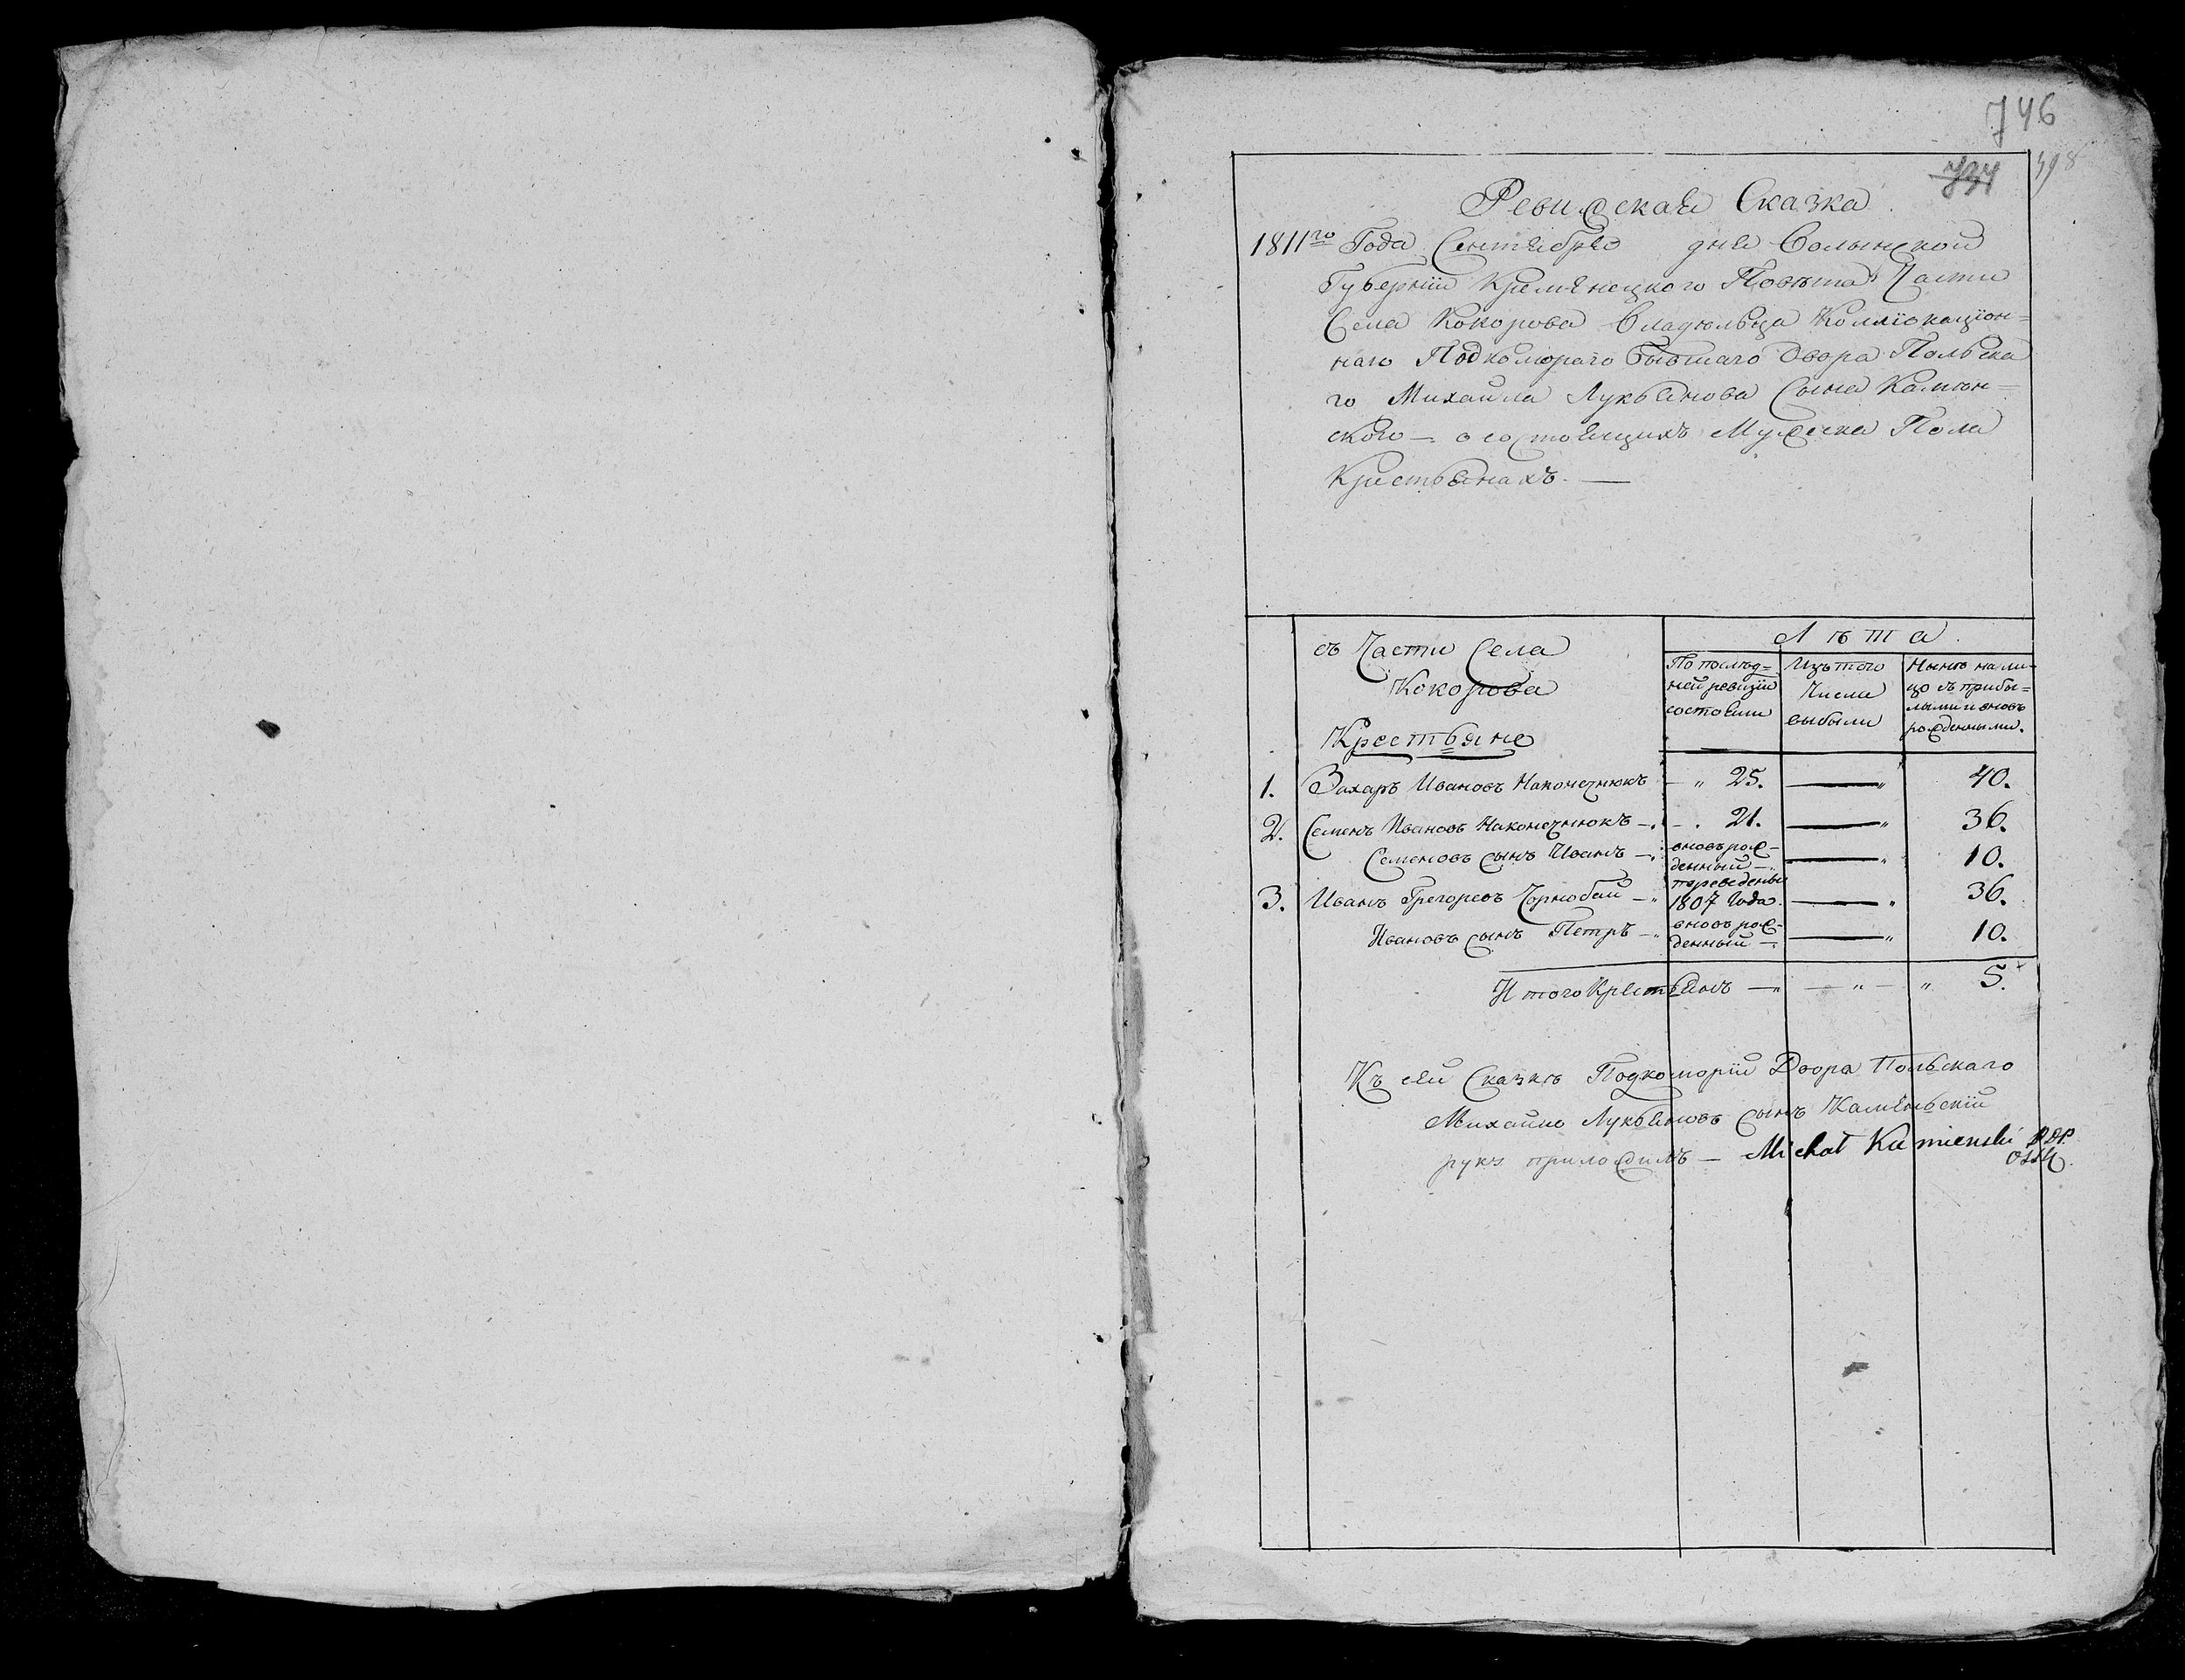 746
734 398
Ревижская Сказка
1811го Года Сентября дня Волынской
Губернiи Кременецкого Повета Части
Села Кокорова Владельца Коллiокацiон=
наго Подкомораго бывшаго Двора Польска
го Михайла Лукьянова Сына Камен=
ского — о состоящихъ Мужеска Пола
Крестьянахъ. —
съ Части Села
Кокорова
Крестьяне
Лѣта
По послѣд=
ней ревизiи
состояли
Изъ того
Числа
выбыли
Нынѣ на ли=
цо съ прибы=
лыми и вновь
рожденными.
1. Захаръ Ивановъ Наконечнюкъ — " 25. — " 40.
2. Семенъ Ивановъ Наконечнюкъ — . 21. — " 36.
Семеновъ сынъ Иванъ — вновь рож-
денный — — " 10.
3. Иванъ Грегоревъ Чорнобай — " переведенъ
1807 Года. — " 36.
Ивановъ сынъ Петръ — вновь рож-
денный — — " 10.
Итого Крестьянъ — " — " — " 5.
Къ сей Сказкѣ Подкоморiй Двора Польскаго
Михайло Лукьяновъ сынъ Каменьскiй
руку приложилъ — Michał Kamienski